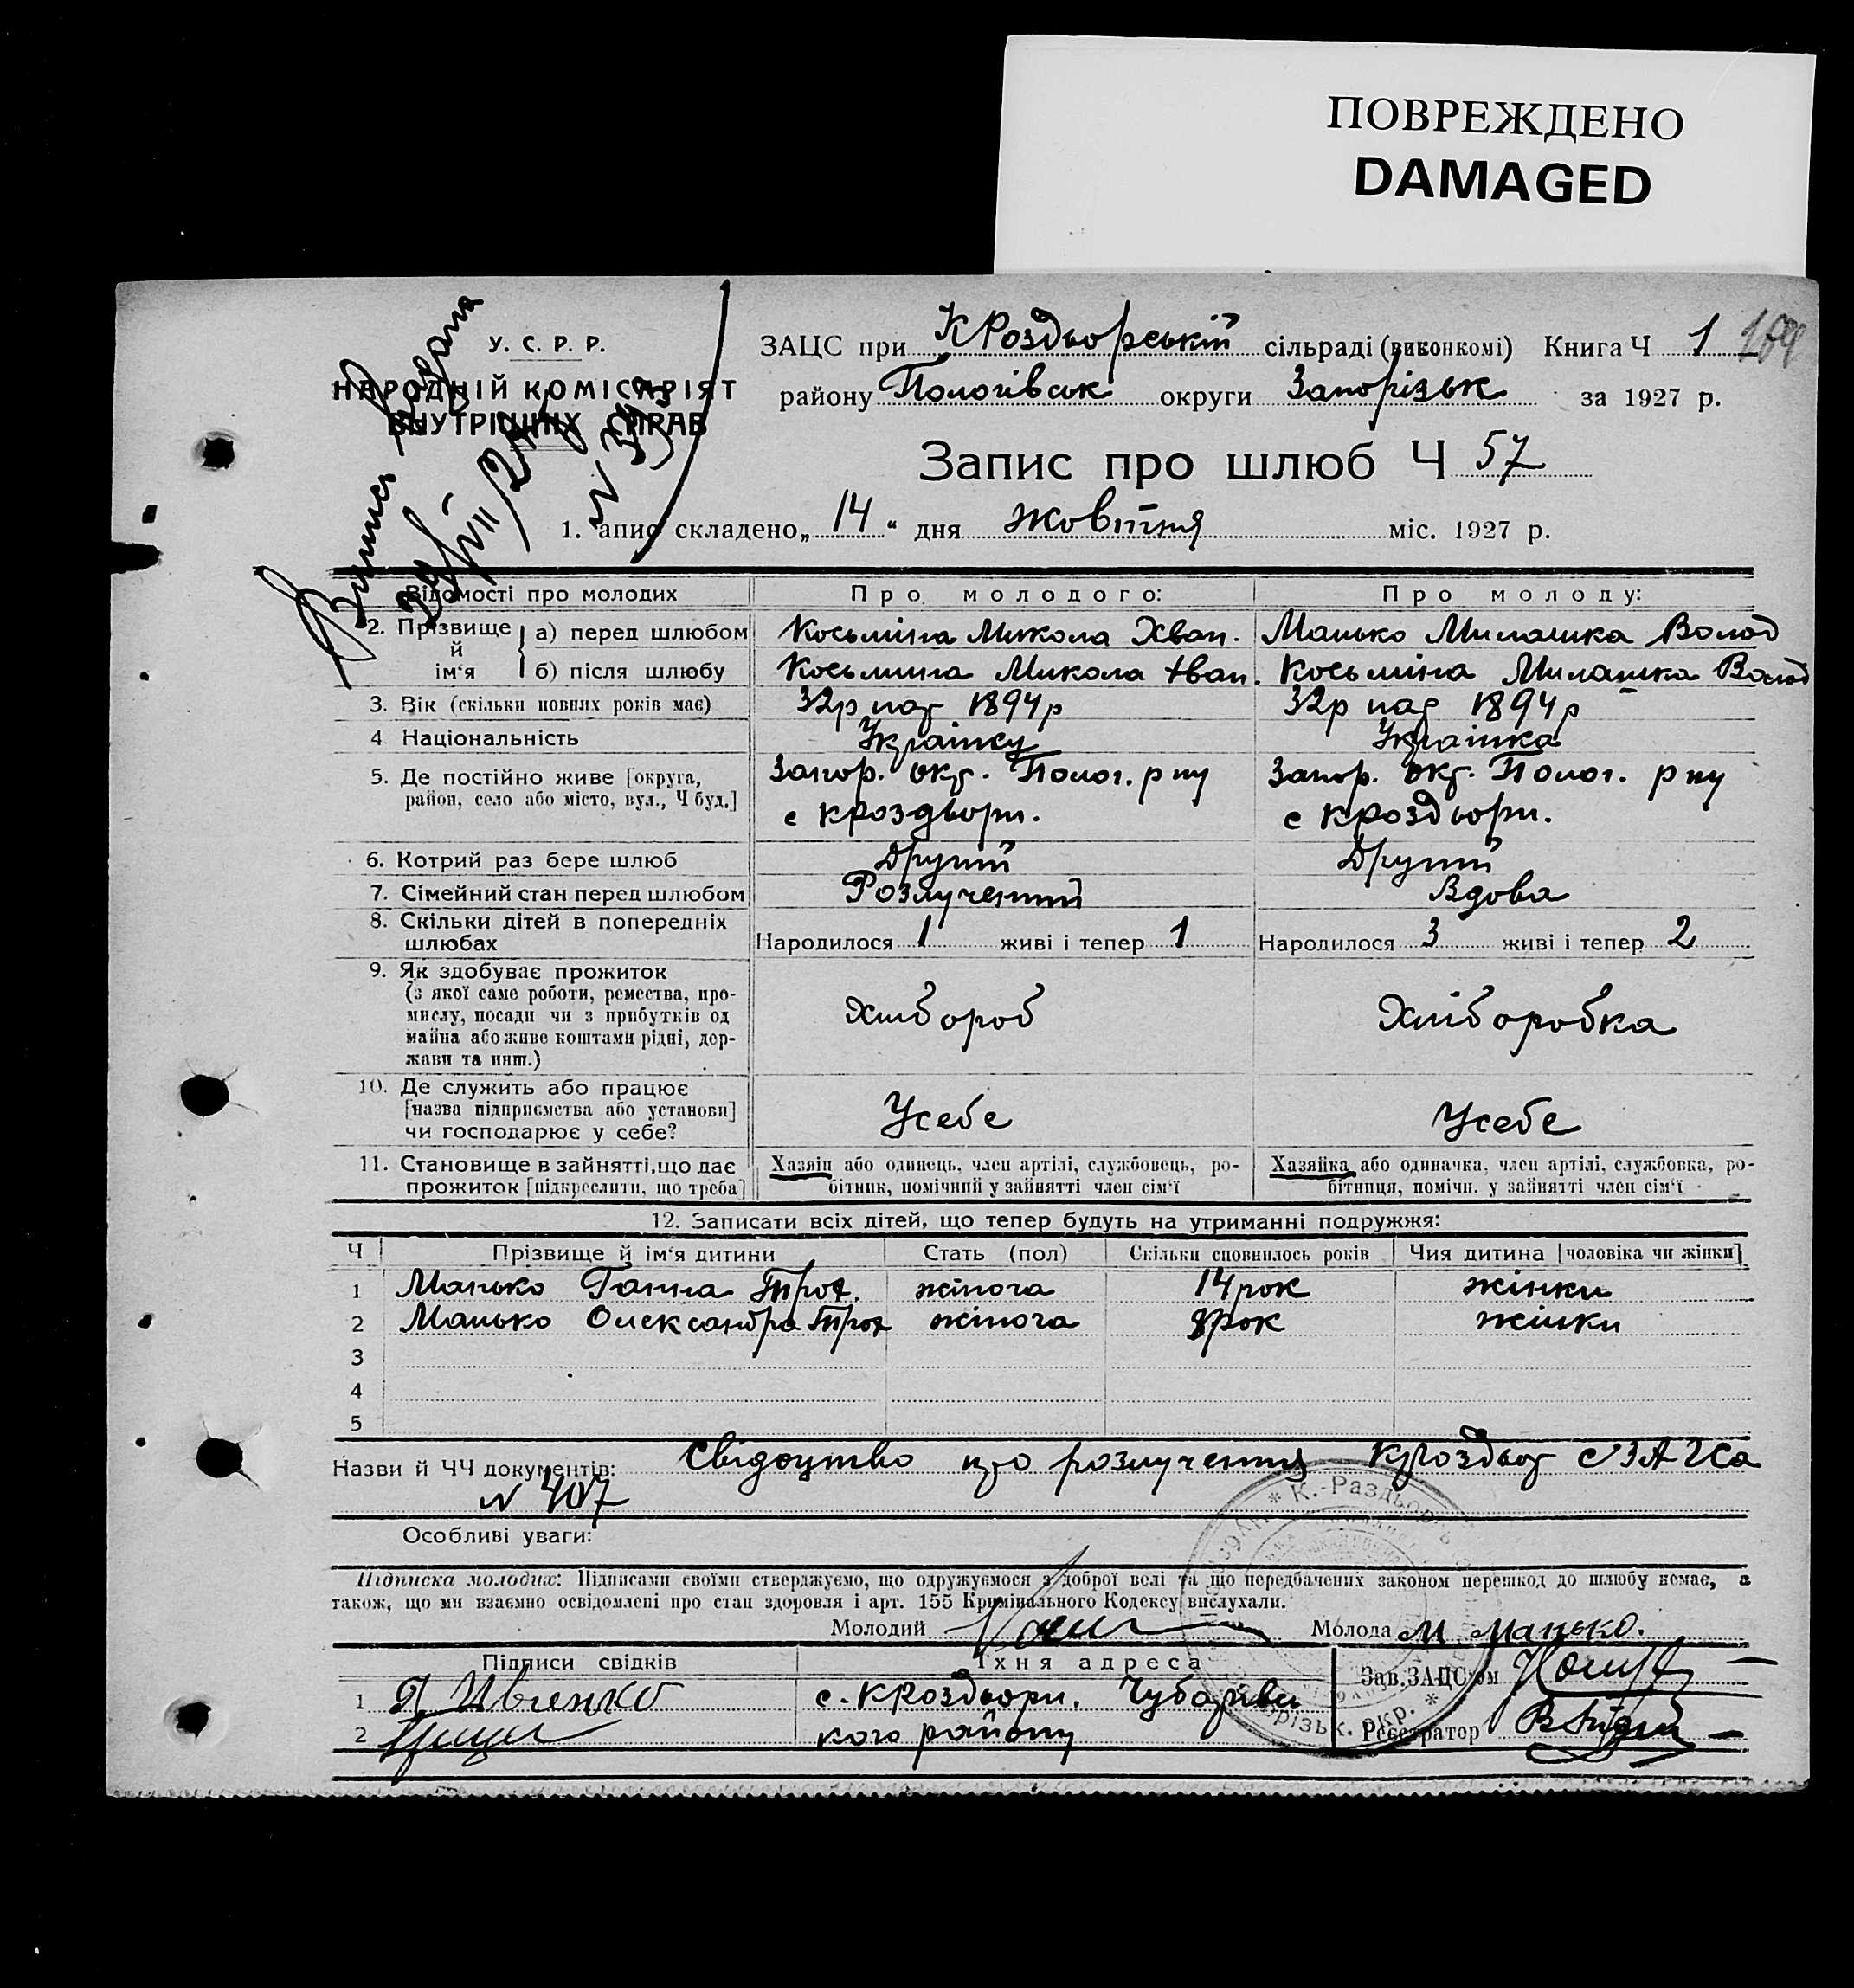 ПОВРЕЖДЕНО
DAMAGED
У. С. Р. Р.
НАРОДНІЙ КОМІСАРІЯТ
ВНУТРІШНІХ СПРАВ
Выпись выдана
ЗАЦС при КРоздьорській сільраді (виконкомі) Книга Ч 1
району Пологівськ округи Запорізьк за 1927 р.
Запис про шлюб Ч 57
1. апис складено „14“ дня жовтня міс. 1927 р.
Відомості про молодих Про молодого: Про молоду:
2. Прізвище й ім‘я а) перед шлюбом Косьміна Микола Іван. Манько Милашка Волод
б) після шлюбу Косьмина Микола Іван. Косьміна Милашка Волод
3. Вік (скільки повних років має) 32р нар 1894р 32р нар 1894р
4 Національність Українец Українка
5. Де постійно живе [округа, район, село або місто, вул., Ч буд.] Запор. окр. Полог. рну Запор. окр. Полог. рну
с кроздьори. с кроздьори.
6. Котрий раз бере шлюб Другий Другий
7. Сімейний стан перед шлюбом Розлучений Вдова
8. Скільки дітей в попередніх шлюбах Народилося 1 живі і тепер 1 Народилося 3 живі і тепер 2
9. Як здобуває прожиток
(з якої саме роботи, ремества, про-
мислу, посади чи з прибутків од
майна або живе коштами рідні, дер-
жави та инш.) Хліб ороб Хліб оробка
10. Де служить або працює
[назва підприємства або установи]
чи господарює у себе? Усебе Усебе
11. Становище в зайнятті, що дає Хазяін або одинець, член артілі, службовець, ро- Хазяйка або одиначка, член артілі, службовка, ро-
прожиток [підкреслити, що треба] бітник, помічний у зайнятті член сім‘ї бітниця, помічн. у зайнятті член сім‘ї
12. Записати всіх дітей, що тепер будуть на утриманні подружжя:
Ч Прізвище й ім‘я дитини Стать (пол) Скільки сповнилось років Чия дитина [чоловіка чи жінки]
1 Манько Ганна Троф. жіноча 14рок жінки
2 Манько Олександра Троф жіноча 8рок жінки
3
4
5
Назви й ЧЧ документів: Свідоцтво про розлучення Кроздьор СЗАГСа
N 407
Особливі уваги:
Підписка молодих: Підписами своїми стверджуємо, що одружуємося з доброї волі та що передбачених законом перешкод до шлюбу немає, а
також, що ми взаємно освідомлені про стан здоровля і арт. 155 Кримінального Кодексу вислухали.
Молодий Молода М Манько.
Підписи свідків Їхня адреса Зав. ЗАЦС‘ом
1 П Ивченко с. КРоздьори. Чубарівсь
2 кого району Реєстратор
* К.-Раздьорсь